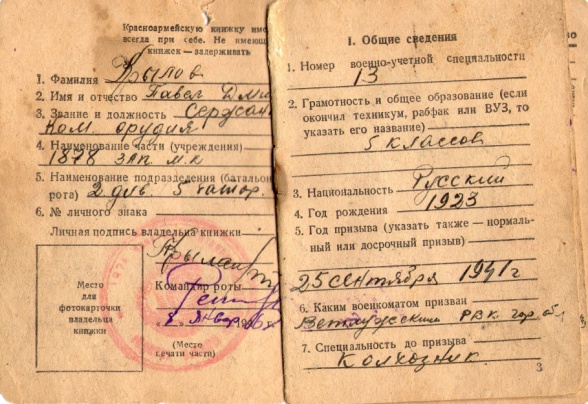 Красноармейскую книжку име
всегда при себе. Не имеющ
книжек — задерживать
1. Фамилия Крылов
2. Имя и отчество Павел Дми
3. Звание и должность Сержан
ком. орудия
4. Наименование части (учреждения)
1878 зап
5. Наименование подразделения (батальон
рота) 2 див 5 батар.
6. № личного знака
Личная подпись владельца книжки
Крылов
Командир роты
Место
для
фотокарточки
владельца
книжки
(Место
печати части)
1. Общие сведения
1. Номер военно-учетной специальности
13
2. Грамотность и общее образование (если
окончил техникум, рабфак или ВУЗ, то
указать его название)
5 классов
3. Национальность Русский
4. Год рождения 1923
5. Год призыва (указать также — нормаль-
ный или досрочный призыв)
25 сентября 1941 г
6. Каким военкоматом призван
Ветлужским РВК гор. обл
7. Специальность до призыва
Колхозник
3